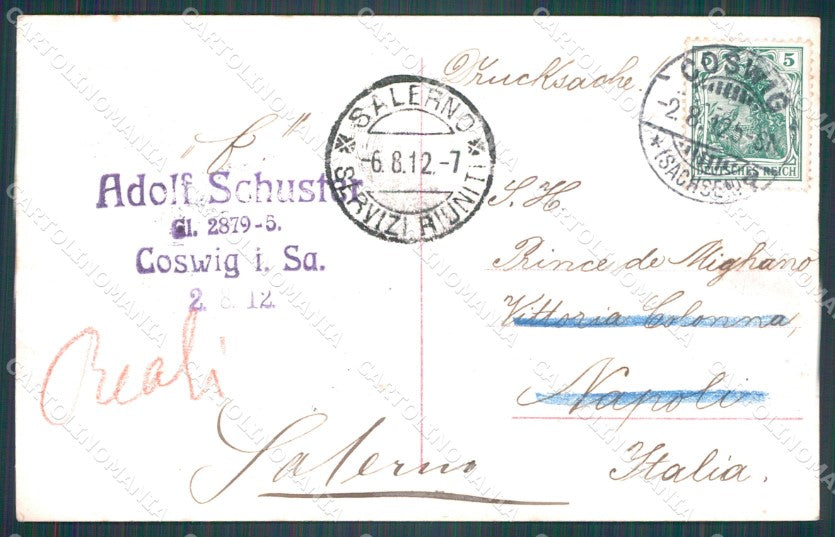 Drucksache.
5
COSWIG
-2.8.12.5-
* (SACHSEN)
DEUTSCHES REICH
SALERNO
-6.8.12.-7
* SERVIZI RIUNITI *
Adolf Schuster
Cl. 2879-5.
Coswig i. Sa.
2. 8. 12.
S. H.
Prince de Mighano
Vittoria Colonna,
Napoli
Italia.
Reali
Salerno
CARTOLINOMANIA